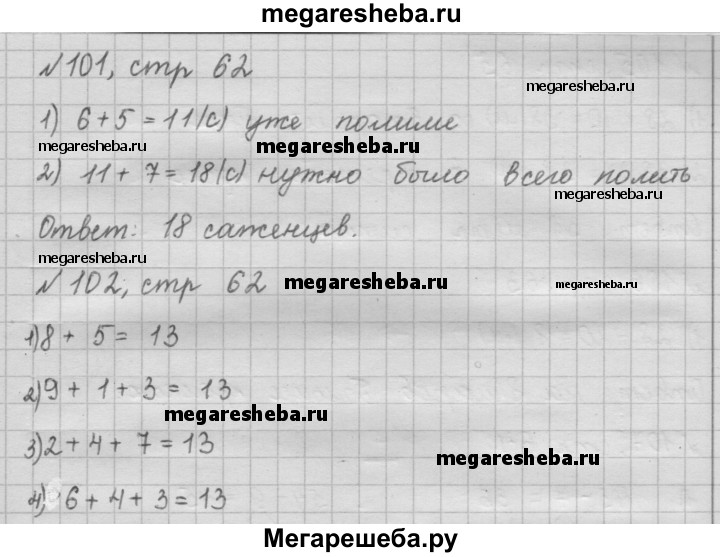 megaresheba.ru
№ 101, стр 62
megaresheba.ru
1) 6 + 5 = 11 (с) уже полили
megaresheba.ru
megaresheba.ru
2) 11 + 7 = 18 (с) нужно было всего полить
megaresheba.ru
Ответ: 18 саженцев.
megaresheba.ru
№ 102, стр 62
megaresheba.ru
megaresheba.ru
1) 8 + 5 = 13
2) 9 + 1 + 3 = 13
megaresheba.ru
3) 2 + 4 + 7 = 13
megaresheba.ru
4) 6 + 4 + 3 = 13
Мегарешеба.ру